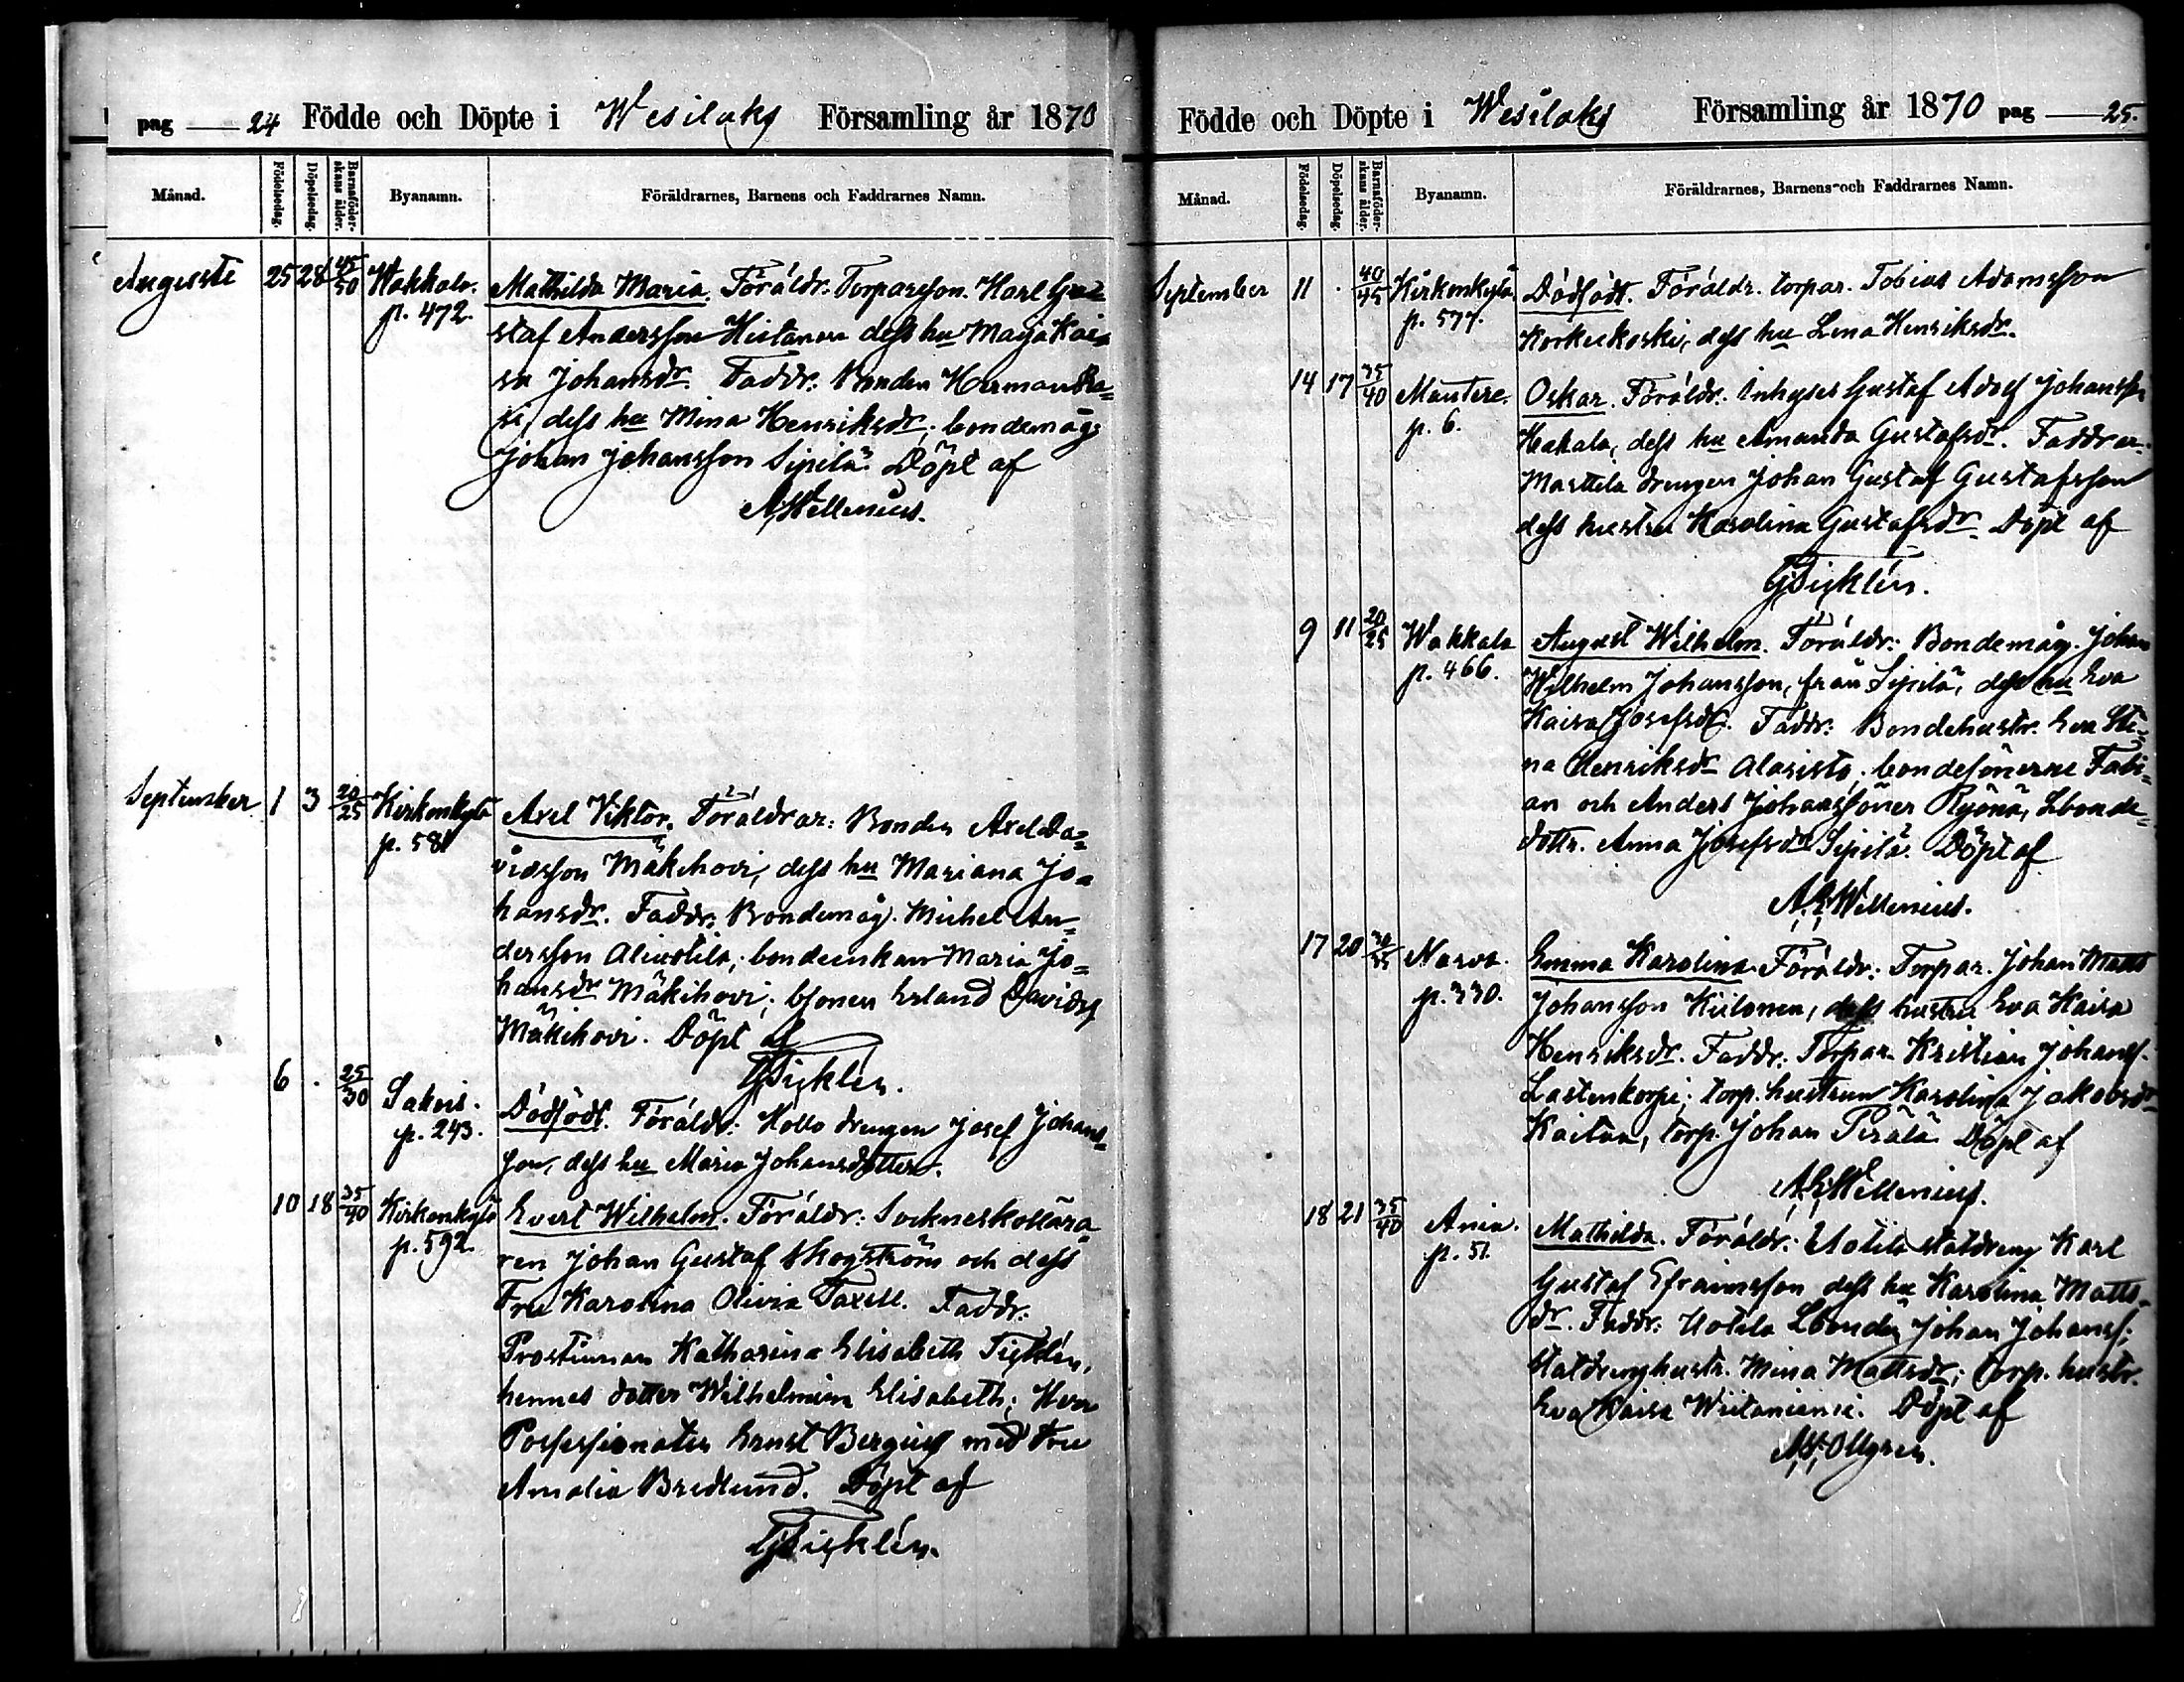 pag 24 Födde och Döpte i Wesilaks Församling år 1870
Månad. Födelsedag. Döpelsedag. Barnaföder-skans ålder. Byanamn. Föräldrarnes, Barnens och Faddrarnes Namn.
Augusti 25 28 45/50 Wakkala. Mathilda Maria. Föräldr: Torparson. Karl Gu-
p. 472. staf Andersson Hiitanen dess hu Maja Kai=
sa Johansdr. Faddr: Bonden Herman
dess hu Mina Henriksdr; bondemåg:
Johan Johansson Sipilä. Döpt af
A Wellenius.
September 1 3 20/25 Kirkonkylä Axel Viktor. Föräldrar: Bonden Axel Da=
p. 581 vidsson Mäkihovi, dess hu Mariana Jo=
hansdr. Faddr: Bondemåg. Michel An=
dersson Aliuotila; bondeenkan Maria Jo=
hansdr Mäkihovi; bsonen Erland Davids
Mäkihovi. Döpt af
G Ticklén.
6 . 25/30 Sakois. Dödfödt. Föräldr: Hollo drengen Josef Johans=
p. 243. son, dess hu Maria Johansdotter.
10 18 35/40 Kirkonkylä Evert Wilhelm. Föräldr: Sockneskollära=
p. 592. ren Johan Gustaf Skogström och dess
Fru Karolina Olivia Taxell. Faddr:
Prostinnan Katharina Elisabeth Ticklén,
hennes dotter Wilhelmina Elisabeth; Herr
Possessionaten Ernst Bergius med Fru
Amalia Bredlund. Döpt af
G Ticklén.
Födde och Döpte i Wesilaks Församling år 1870 pag 25.
Månad. Födelsedag. Döpelsedag. Barnaföder-skans ålder. Byanamn. Föräldrarnes, Barnens och Faddrarnes Namn.
September 11 . 40/45 Kirkonkylä Dödfödt. Föräldr. torpar. Tobias Adamsson
p. 577. Korkeekoski, dess hu Lena Henriksdr.
14 17 35/40 Mantere. Oskar. Föräldr: Inhyses Gustaf Adolf Johansson
p. 6. Hakala, dess hu Amanda Gustafsdr. Faddrar:
Marttila drengen Johan Gustaf Gustafsson
dess hustru Karolina Gustafsdr. Döpt af
G Ticklén.
9 11 20/25 Wakkala August Wilhelm. Föräldr: Bondemåg. Johan
p. 466. Wilhelm Johansson, från Sipilä, dess hu Eva
Kaisa Josefsdr. Faddr: Bondehustr. Eva Sti=
na Henriksdr Alasisto; bondesönerne Fabi=
an och Anders Johanssöner Ryönä, Lbonde=
dottr. Anna Josefsdr Sipilä. Döpt af
A.E. Wellenius.
17 20 30/35 Narva. Emma Karolina. Föräldr: Torpar. Johan Matts
p. 330. Johansson Kiilonen, dess hustru Eva Kaisa
Henriksdr. Faddr: Torpar. Kristian Johanss.
Lastenkorpi; torp. hustrun Karolina Jakobsdr
Kaitaa, torp. Johan Perälä. Döpt af
A.E. Wellenius.
18 21 35/40 Ania. Mathilda. Föräldr: Uotila statdreng Karl
p. 51. Gustaf Efraimsson dess hu Karolina Matts-
dr. Faddr: Uotila Lbonden Johan Johanss;
statdrenghustr. Mina Mattsdr; torp. hustr.
Eva Kaisa Wiitaniemi. Döpt af
A.H. Ollgren.